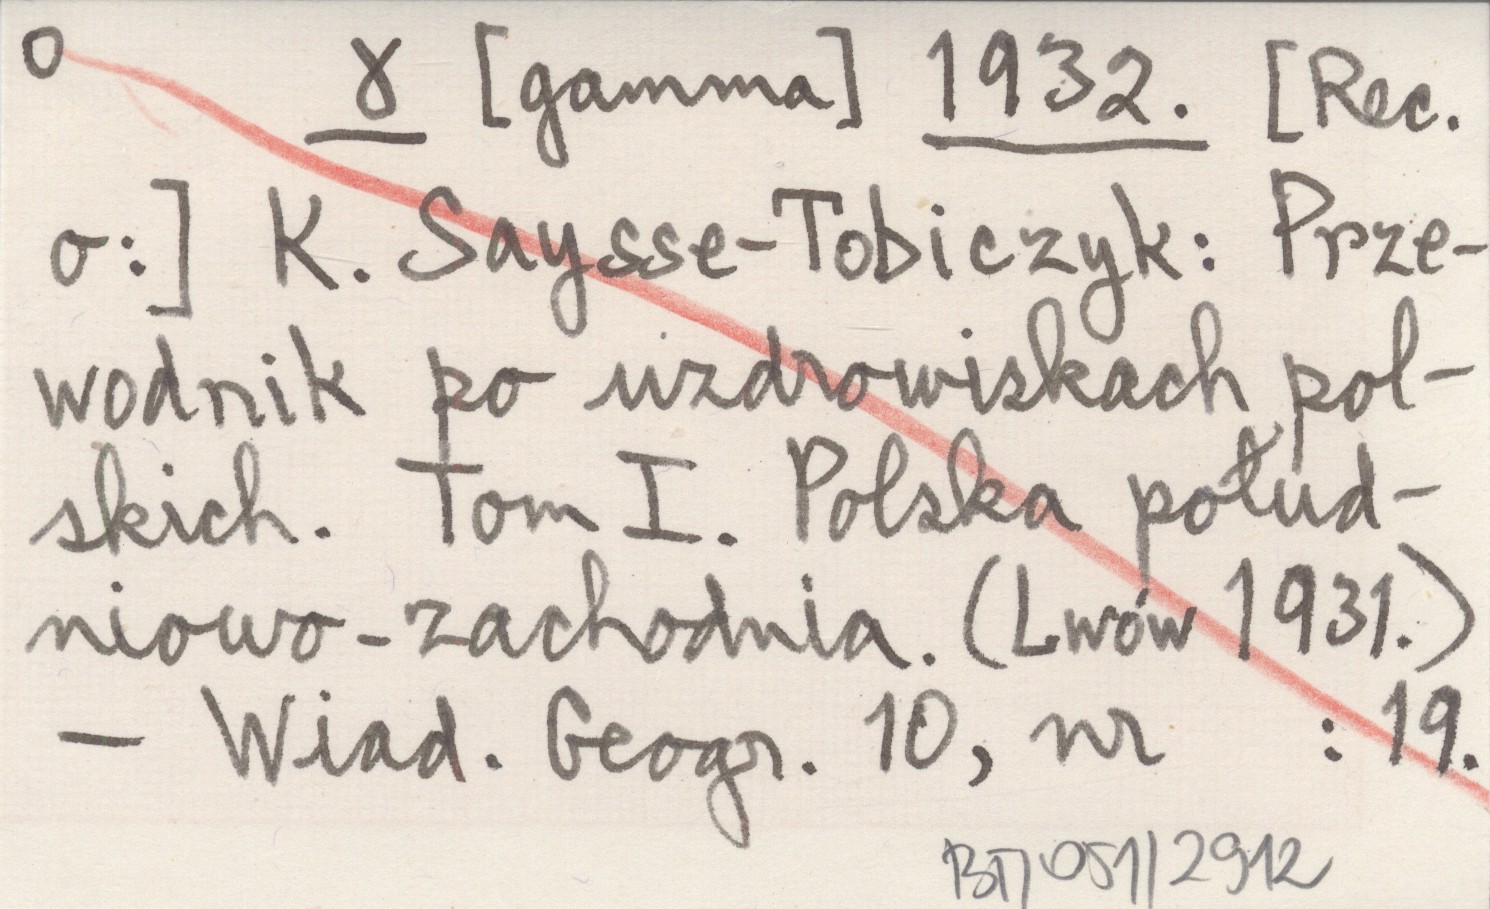 o γ [gamma] 1932. [Rec.
o:] K. Saysse-Tobiczyk: Prze-
wodnik po uzdrowiskach pol-
skich. Tom I. Polska połud-
niowo-zachodnia. (Lwów 1931.)
— Wiad. Geogr. 10, nr : 19.
051/2912